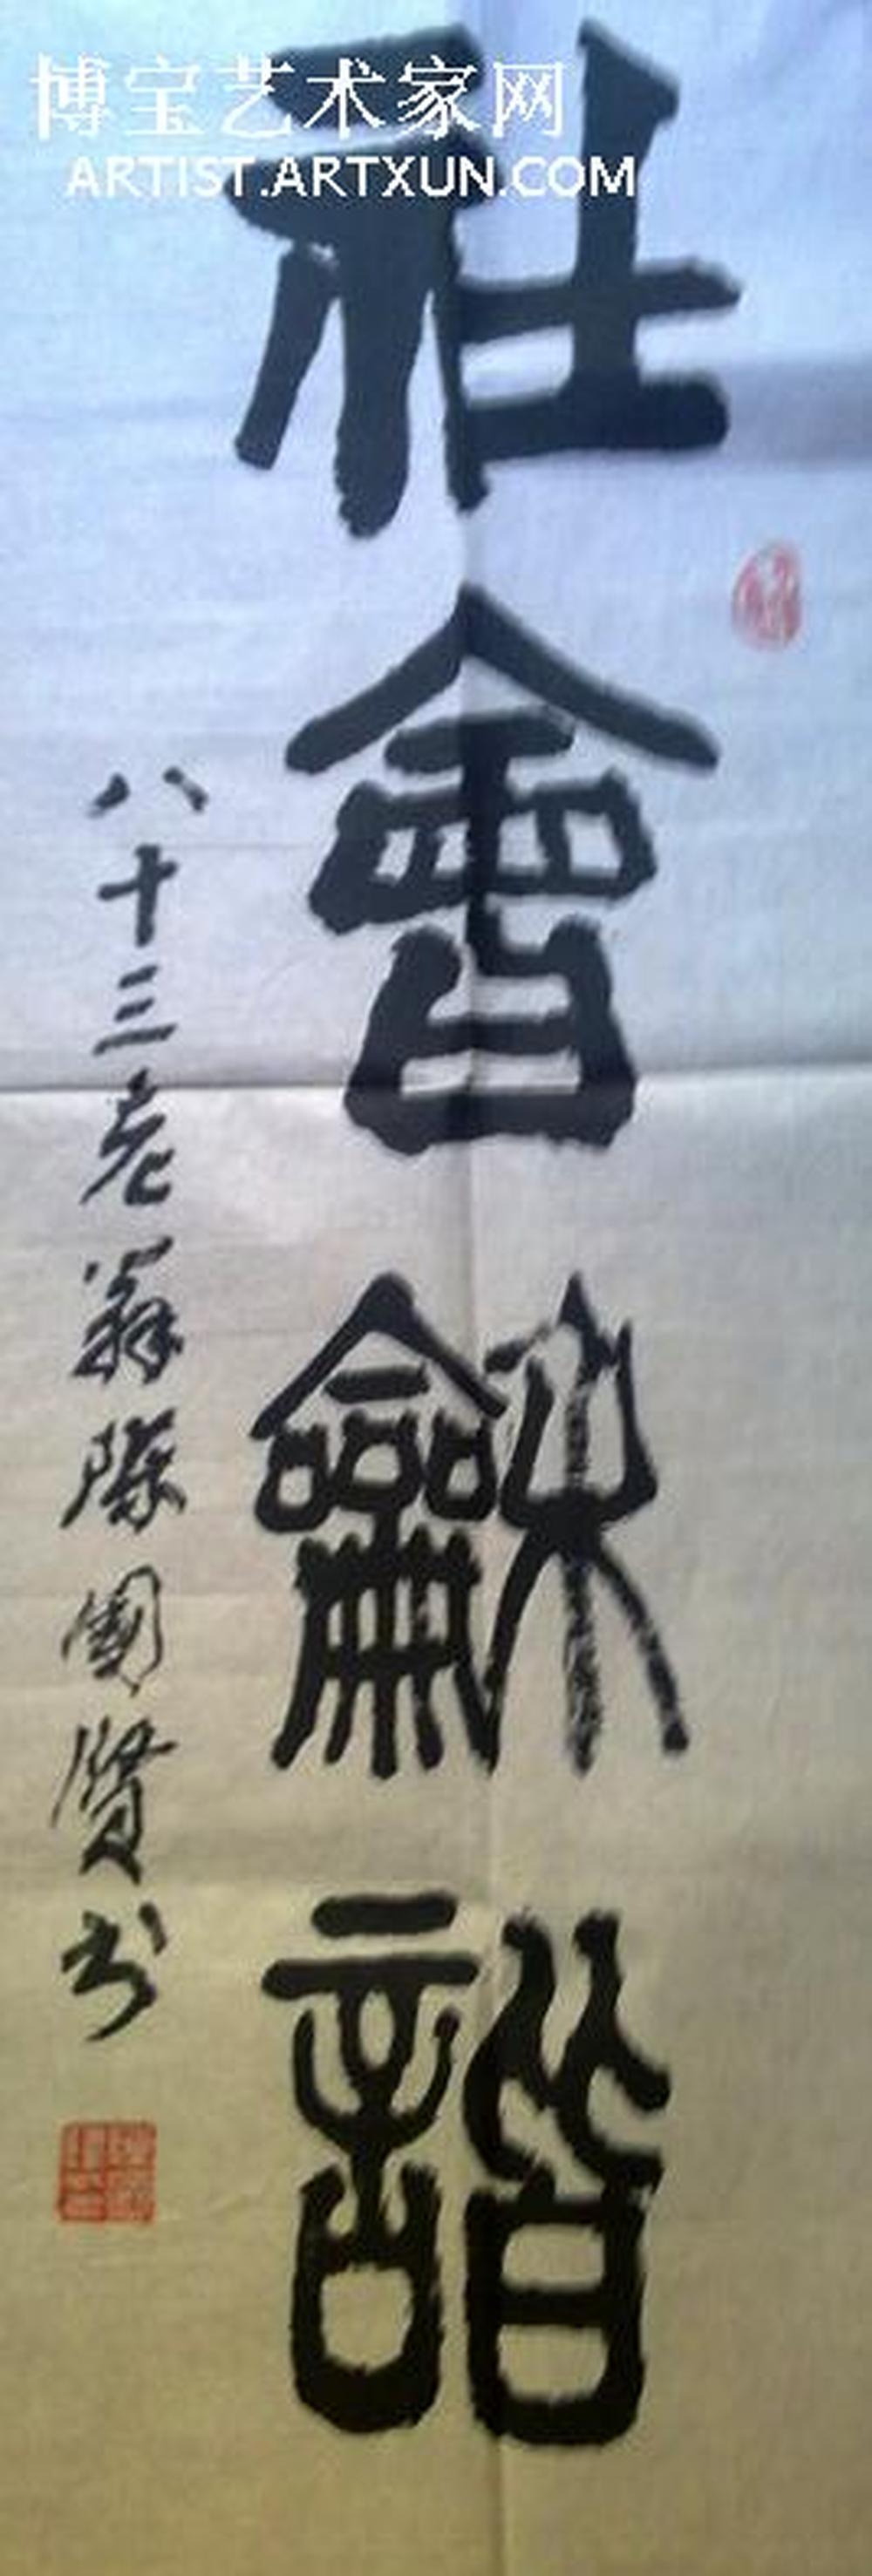 博宝艺术家网
ARTIST.ARTXUN.COM
社會龢諧
八十三老翁陈國贤书